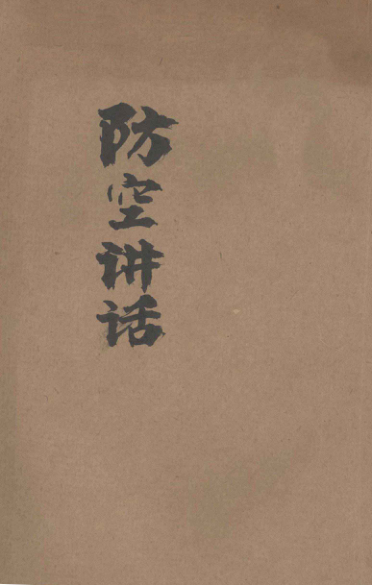 防空讲话